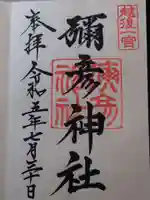 越後一宮
彌彦神社
奉拝
令和五年七月三十日